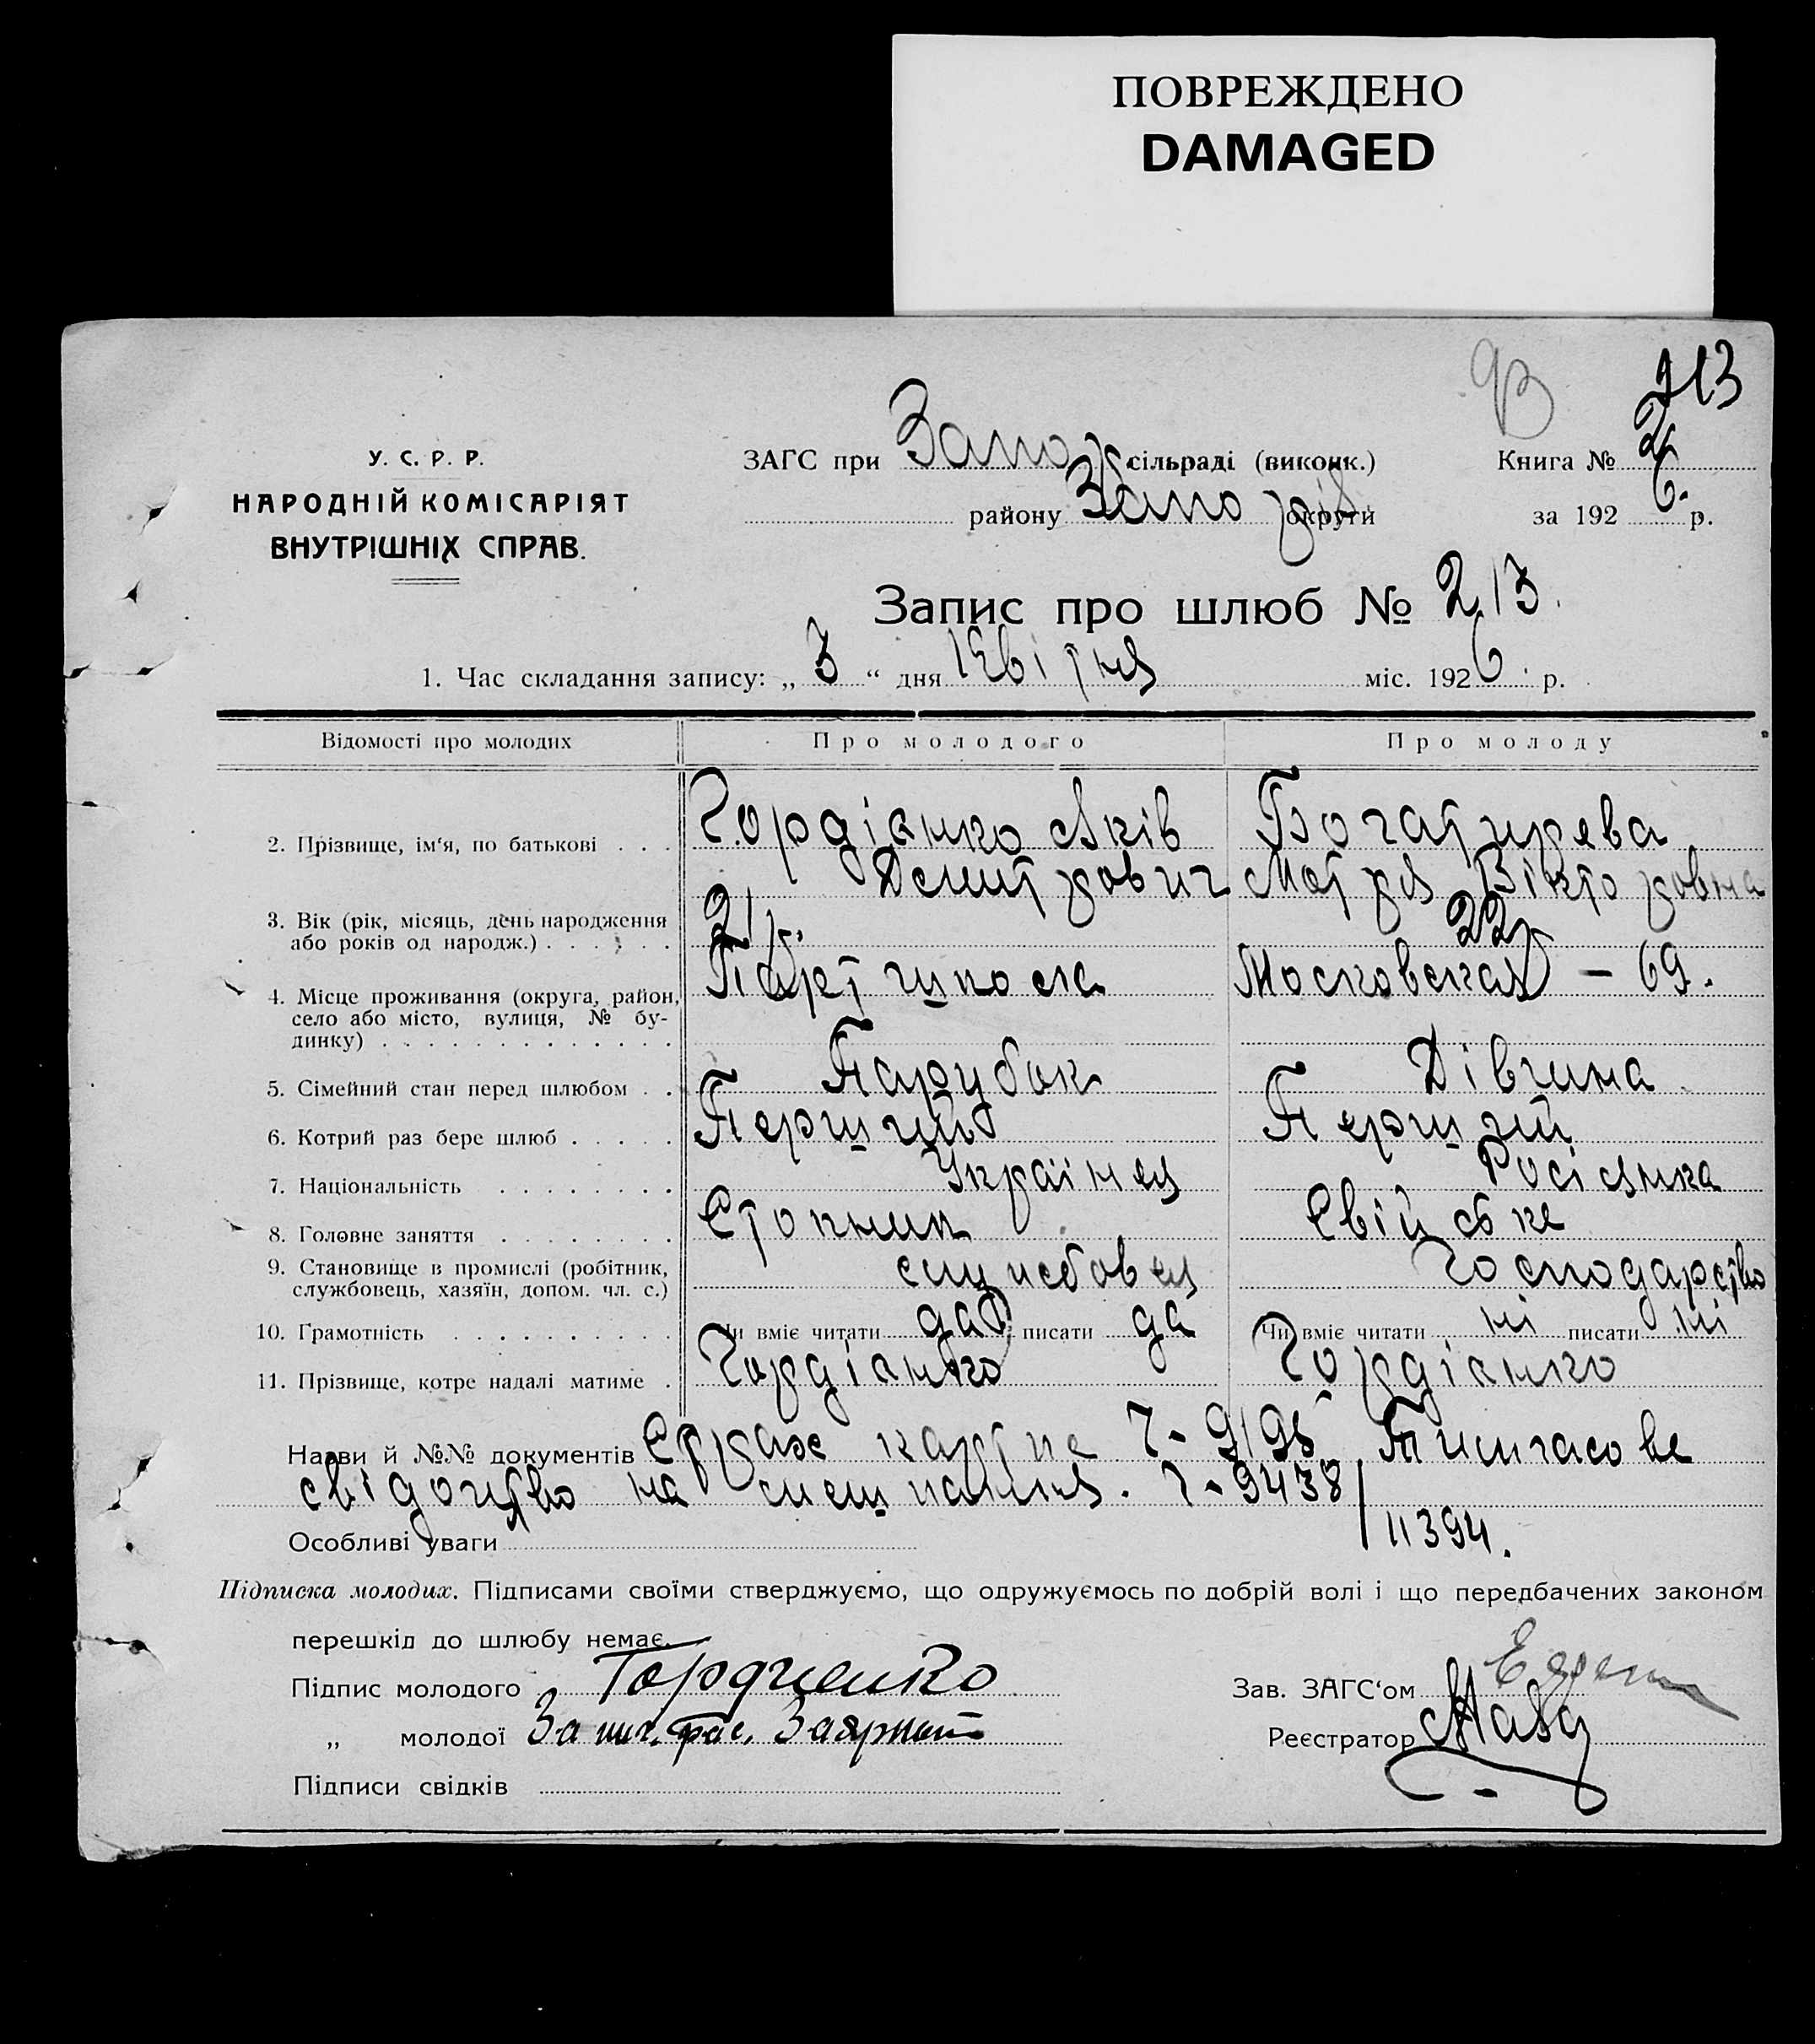 ПОВРЕЖДЕНО
DAMAGED
93 213
У. С. Р. Р.
НАРОДНІЙ КОМІСАРІЯТ
ВНУТРІШНІХ СПРАВ.
ЗАГС при Запор сільраді (виконк.) Книга № 2
району Запоріз округи за 1926 р.
Запис про шлюб № 213.
1. Час складання запису: „ 3 “ дня Квітня міс. 1926 р.
Відомості про молодих Про молодого Про молоду
2. Прізвище, ім‘я, по батькові . . . Гордіенко Яків Богатирева
Дємитрович Мотря Вікторовна
3. Вік (рік, місяць, день народження або років од народж.) . . . . . . 21 р. 22 р
4. Місце проживання (округа, район, село або місто, вулиця, № будинку) . . . . . . . . . . . . . Московская – 69.
5. Сімейний стан перед шлюбом . . Парубок Дівчина
6. Котрий раз бере шлюб . . . . . Перший Перший
7. Національність . . . . . . . . Українец Росіянка
8. Головне заняття . . . . . . . . Свійське
9. Становище в промислі (робітник, службовець, хазяїн, допом. чл. с.) службовец Господарство
10. Грамотність . . . . . . . . . . Чи вміє читати да писати да Чи вміє читати ні писати ні
11. Прізвище, котре надалі матиме . Гордіенко Гордіенко
Назви й №№ документів Страх картка Ч- 9198 Тимчасове
свідоцтво на мешкання. Ч- 9438/11394.
Особливі уваги
Підписка молодих. Підписами своїми стверджуємо, що одружуємось по добрій волі і що передбачених законом
перешкід до шлюбу немає.
Підпис молодого Гордиенко Зав. ЗАГС‘ом
„ молодої За Реєстратор
Підписи свідків